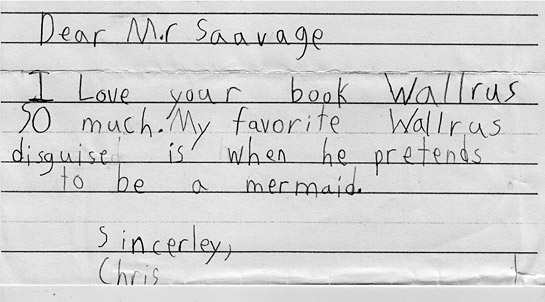 Dear M.r Saavage
I Love your book Wallrus
SO much. My favorite Wallrus
disguise is when he pretends
to be a mermaid.
Sincerley,
Chris